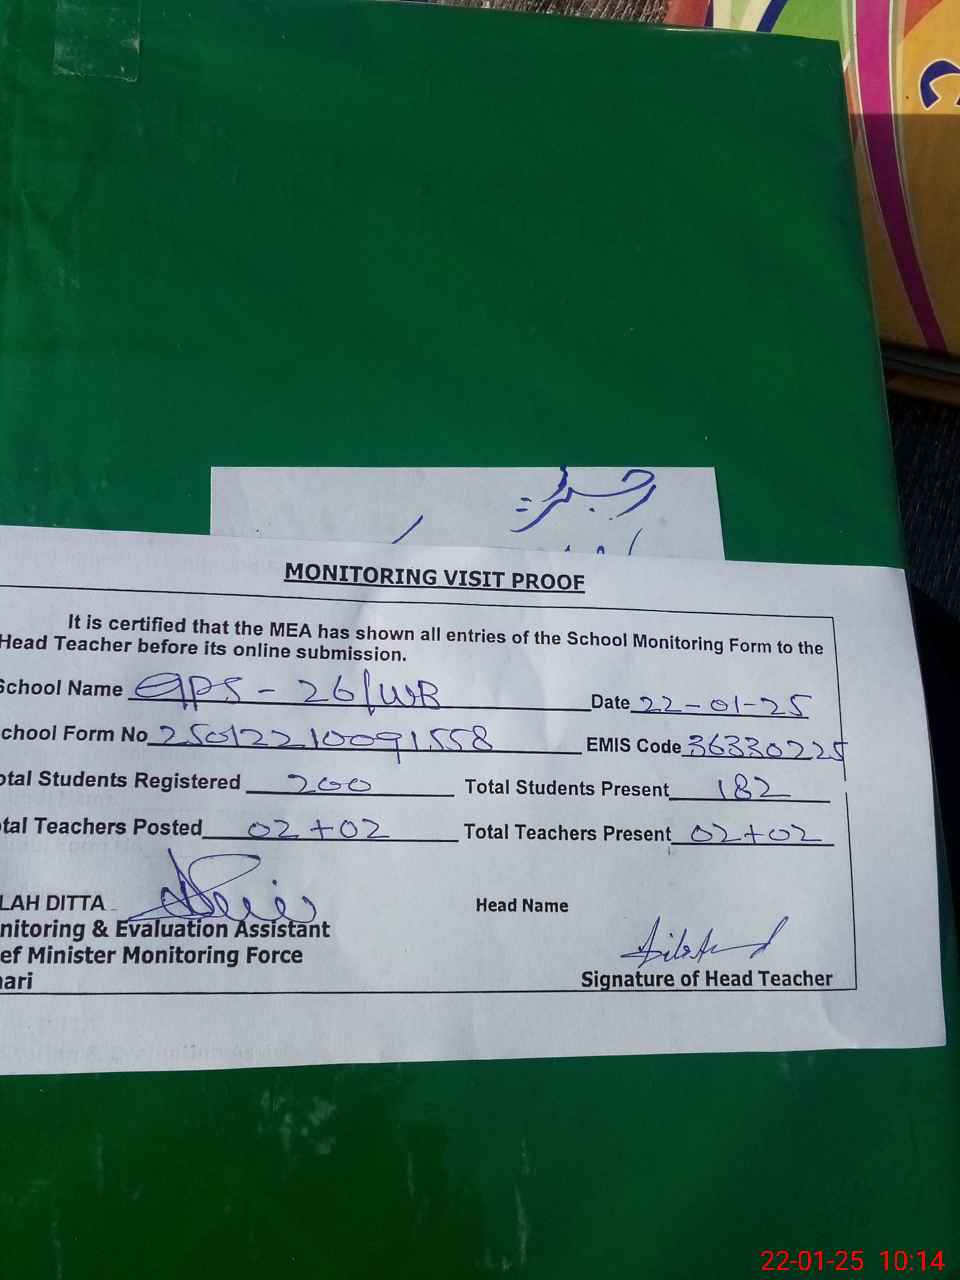 C
رجسٹر
MONITORING VISIT PROOF
It is certified that the MEA has shown all entries of the School Monitoring Form to the
Head Teacher before its online submission.
School Name GPS - 26/WB Date 22-01-25
chool Form No 25012210091558 EMIS Code 36330225
otal Students Registered 200 Total Students Present 182
tal Teachers Posted 02+02 Total Teachers Present 02+02
LAH DITTA Head Name
nitoring & Evaluation Assistant
ef Minister Monitoring Force
ari Signature of Head Teacher
22-01-25 10:14